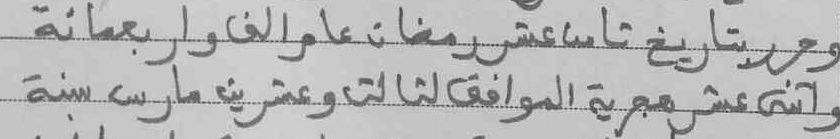 وحرر بتاريخ ثامن عشر رمضان عام الف واربعمائة
واثنى عشر هجرية الموافق لثالث وعشرين مارس سنة